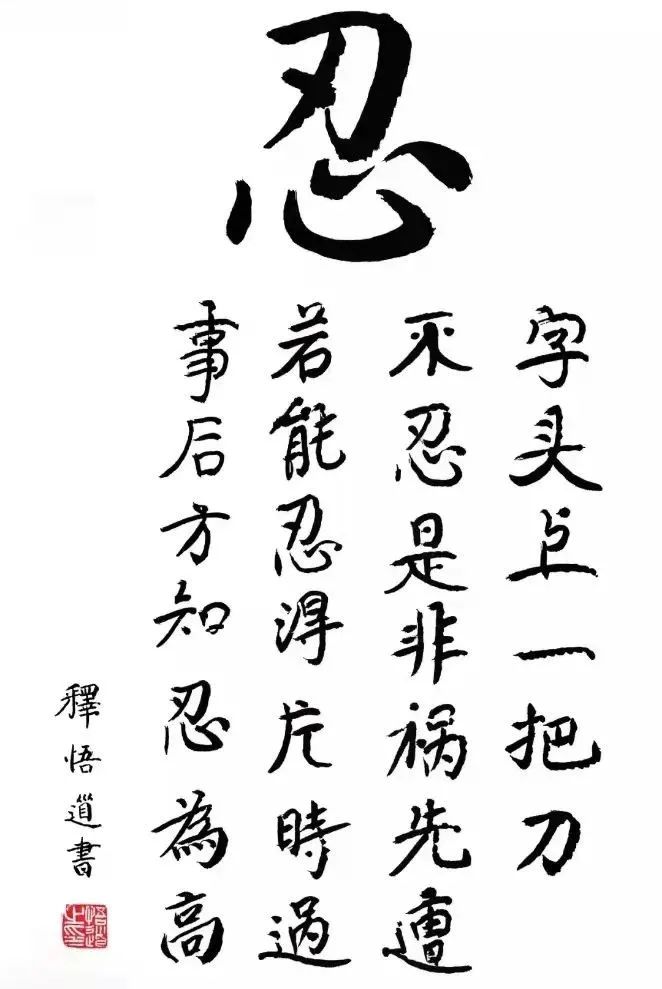 忍
字头上一把刀
不忍是非祸先遭
若能忍得片時過
事后方知忍為高
釋悟道書
悟道之印